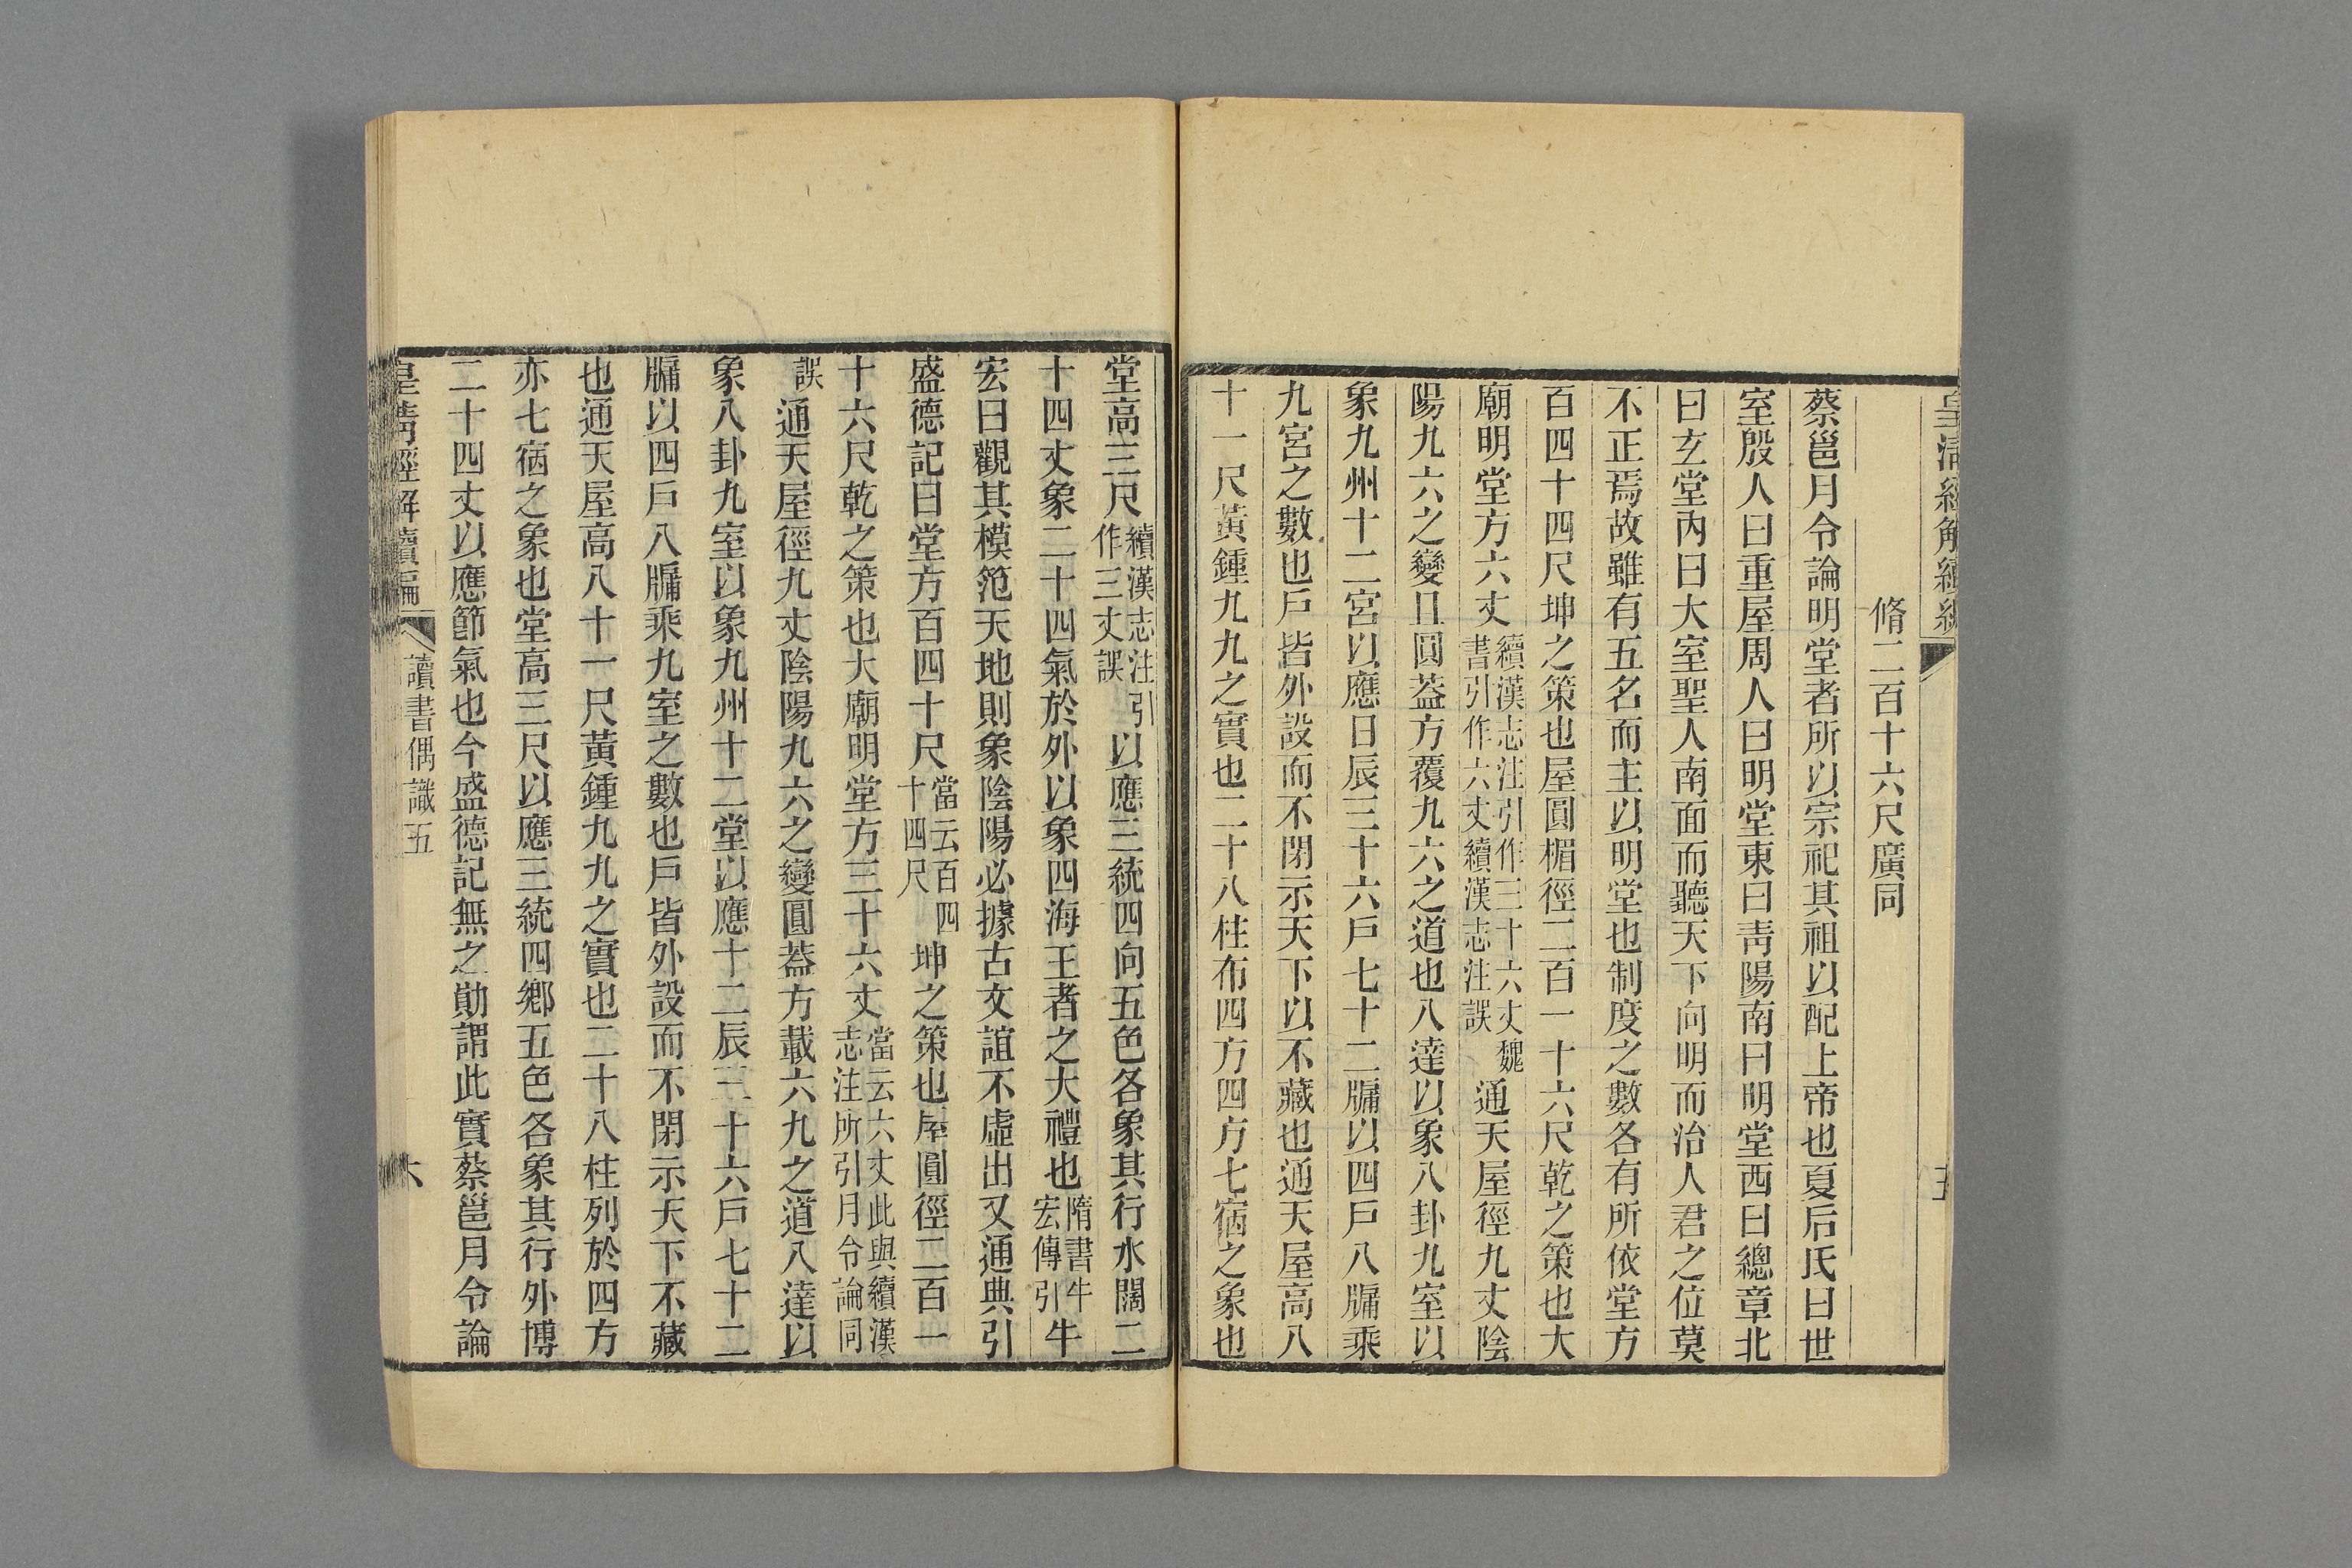 皇清經解續編
脩二百十六尺廣同
蔡邕月令論明堂者所以宗祀其祖以配上帝也夏后氏曰世
室殷人曰重屋周人曰明堂東曰靑陽南曰明堂西曰總章北
曰玄堂內曰大室聖人南面而聽天下向明而治人君之位莫
不正焉故雖有五名而主以明堂也制度之數各有所依堂方
百四十四尺坤之策也屋圓楣徑二百一十六尺乾之策也大
廟明堂方六丈續漢志注引作三十六丈魏書引作六丈續漢志注誤通天屋徑九丈陰
陽九六之變且圓蓋方覆九六之道也八達以象八卦九室以
象九州十二宮以應日辰三十六戶七十二牖以四戶八牖乘
九宮之數也戶皆外設而不閉示天下以不藏也通天屋高八
十一尺黃鍾九九之實也二十八柱布四方四方七宿之象也
堂高三尺續漢志注引作三丈誤以應三統四向五色各象其行水闊二
十四丈象二十四氣於外以象四海王者之大禮也隋書牛宏傳引牛
宏曰觀其模范天地則象陰陽必據古文誼不虛出又通典引
盛德記曰堂方百四十尺當云百四十四尺坤之策也屋圓徑二百一
十六尺乾之策也大廟明堂方三十六丈當云六丈此與續漢志注所引月令論同
誤通天屋徑九丈陰陽九六之變圓蓋方載六九之道八達以
象八卦九室以象九州十二堂以應十二辰三十六戶七十二
牖以四戶八牖乘九室之數也戶皆外設而不閉示天下不藏
也通天屋高八十一尺黃鍾九九之實也二十八柱列於四方
亦七宿之象也堂高三尺以應三統四鄉五色各象其行外博
二十四丈以應節氣也今盛德記無之勛謂此實蔡邕月令論
皇清經解續編
讀書偶識五
六